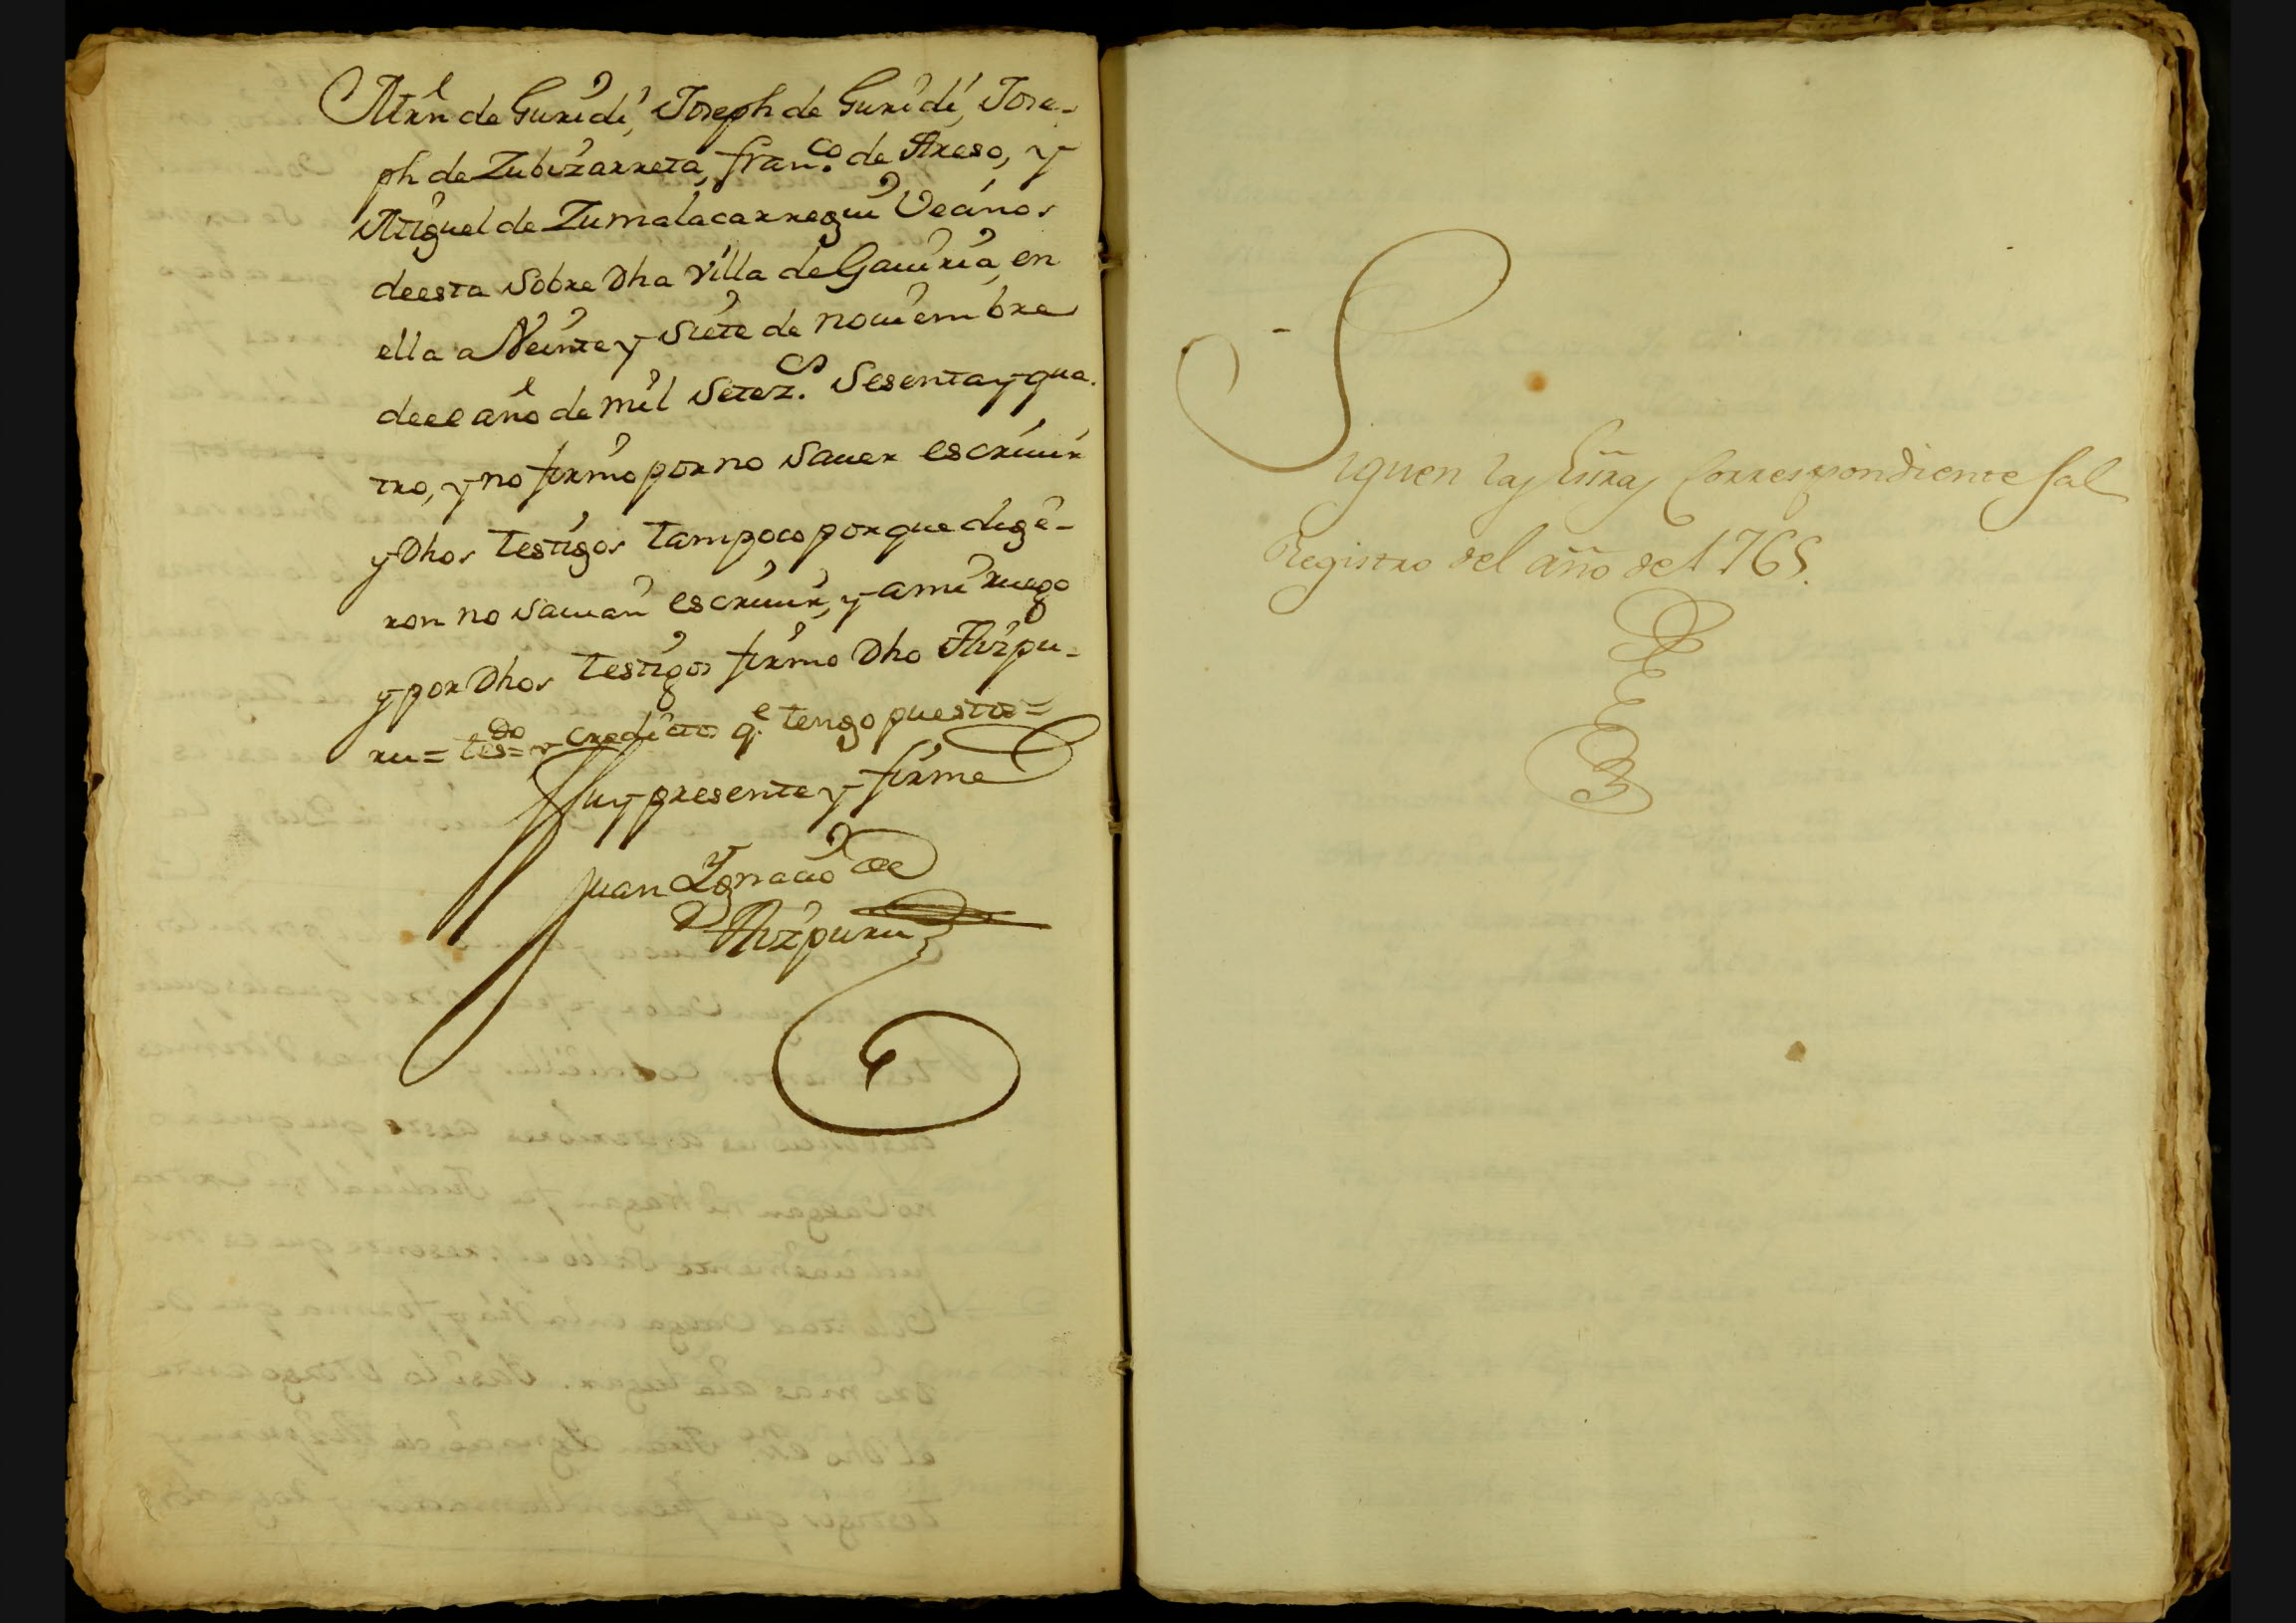 Mrñl de Guridi, Joseph de Guridi, Jose-
ph de Zubizarreta, Fran.co de Areso, y
Miguel de Zumalacarregui Vecinos
de esta sobre Dha Villa de Gaviria, en
ella a Veinte y siete de Noviembre
de el año de mil setez.os sesenta y qua.
tro, y no firmo por no saver escrivir
y Dhos testigos tampoco porque dige-
ron no savian escrivir, y a mi ruego
y por Dhos testigos firmo Dho Aizpu-
ru = tesdo = y creditos q.e tengo puestos =
fuy presente y firme
Juan Ygnacio de
Aizpuru
Siguen las Essras Correspondientes al
Registro del año de 1765.